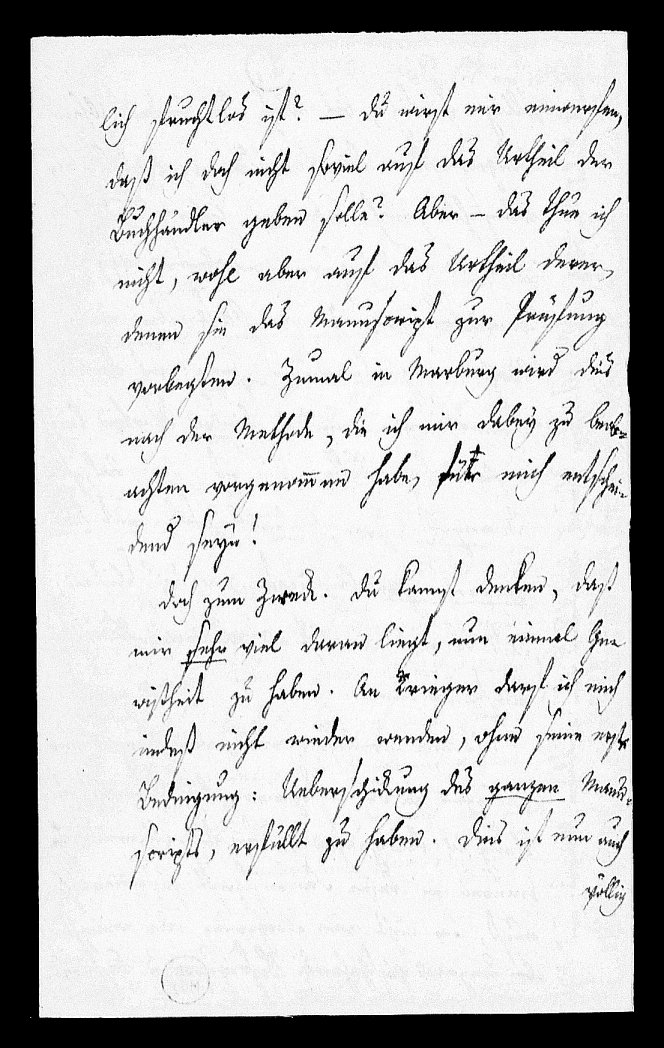 lich fruchtlos ist? — Du wirst mir einwerfen,
daß ich doch nicht soviel auf das Urtheil der
Buchhändler geben solle? Aber — das thue ich
nicht, wohl aber auf das Urtheil derer,
denen sie das Manuscript zur Prüfung
vorlegten. Zumal in Marburg wird dies
nach der Methode, die ich mir dabey zu beob-
achten vorgenommen habe, für mich entschei-
dend seyn!
Doch zum Zweck. Du kannst denken, daß
mir sehr viel daran liegt, nun einmal Ge-
wißheit zu haben. An Krieger darf ich mich
indeß nicht wieder wenden, ohne seine erste
Bedingung: Ueberschickung des ganzen Manu-
scripts, erfüllt zu haben. Dies ist nun auch
völlig